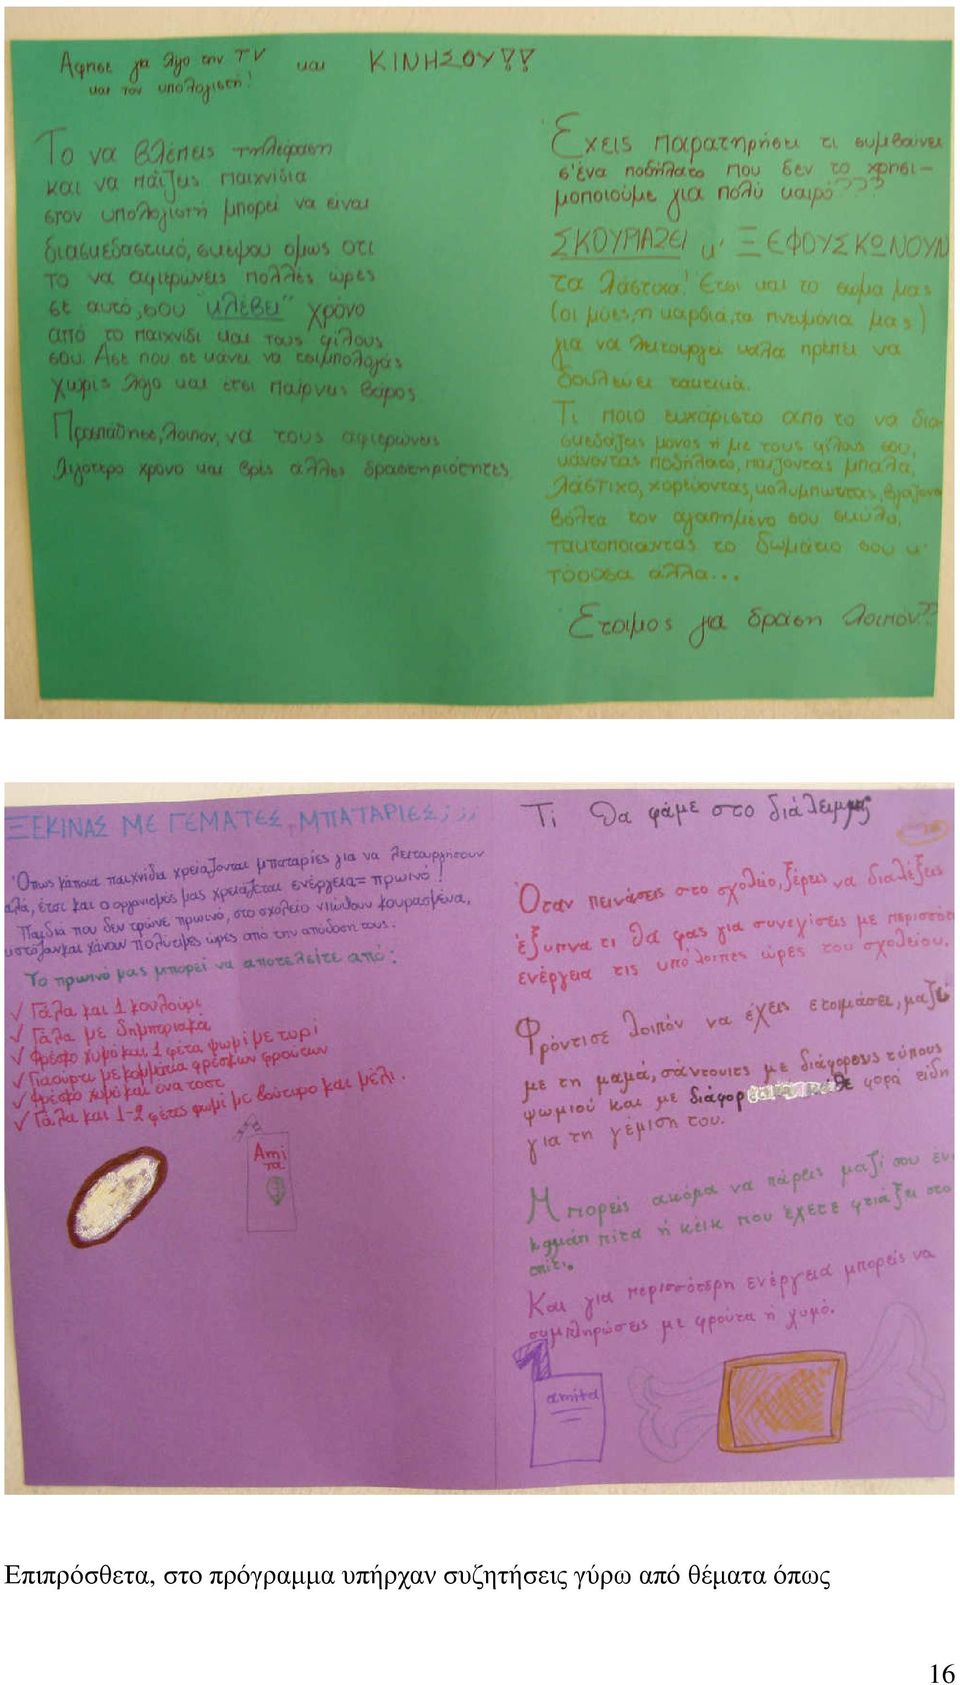 Αφησε για λίγο την TV και ΚΙΝΗΣΟΥ!!
και τον υπολογιστή!
Το να βλέπεις τηλεόραση
και να παίζεις παιχνίδια
στον υπολογιστή μπορεί να είναι
διασκεδαστικό, σκέψου όμως οτι
το να αφιερώνεις πολλές ώρες
σε αυτό, σου "κλέβει" χρόνο
από το παιχνίδι και τους φίλους
σου. Άσε που σε κάνει να τσιμπολογάς
χωρίς λόγο και έτσι παίρνεις βάρος.
Προσπάθησε, λοιπον, να τους αφιερώνεις
λιγότερο χρόνο και βρές άλλες δραστηριότητες.
Έχεις παρατηρήσει τι συμβαίνει
σ'ένα ποδήλατο που δεν το χρησι-
μοποιούμε για πολύ καιρό???
ΣΚΟΥΡΙΑΖΕΙ κ' ΞΕΦΟΥΣΚΩΝΟΥΝ
τα λάστιχα! Έτσι και το σώμα μας
(οι μύες, η καρδιά, τα πνευμόνια μας)
για να λειτουργεί καλά πρέπει να
δουλεύει τακτικά.
Τι ποιο ευχάριστο απο το να δια-
σκεδάζεις μόνος ή με τους φίλους σου,
κάνοντας ποδήλατο, παίζοντας μπάλα,
λάστιχο, χορεύοντας, κολυμπώντας, βγάζοντα
βόλτα τον αγαπημένο σου σκύλο,
τακτοποιώντας το δωμάτιο σου κ'
τόσοσα άλλα...
Έτοιμος για δράση λοιπόν??
ΞΕΚΙΝΑΣ ΜΕ ΓΕΜΑΤΕΣ ΜΠΑΤΑΡΙΕΣ;;;
Όπως κάποια παιχνίδια χρειάζονται μπαταρίες για να λειτουργήσουν
αλά, έτσι και ο οργανισμός μας χρειάζεται ενέργεια = πρωινό!
Παιδιά που δεν τρώνε πρωινό, στο σχολείο νιώθουν κουρασμένα,
υστάζουν και χάνουν πολύτιμες ώρες από την απόδοση τους.
Το πρωινό μας μπορεί να αποτελείτε από:
√ Γάλα και 1 κουλούρι
√ Γάλα με δημητριακά
√ Φρέσκο χυμό και 1 φέτα ψωμί με τυρί
√ Γιαούρτι με κομμάτια φρέσκων φρούτων
√ Φρέσκο χυμό και ένα τοστ
√ Γάλα και 1-2 φέτες ψωμί με βούτυρο και μέλι.
Ami
τα
Τι θα φάμε στο διάλειμμα;
Όταν πεινάσεις στο σχολείο, ξέρεις να διαλέξεις
έξυπνα τι θα φας για συνεχίσεις με περισσότ
ενέργεια τις υπόλοιπες ώρες του σχολείου.
Φρόντισε λοιπόν να έχεις ετοιμάσει, μαζί
με τη μαμά, σάντουιτς με διάφορους τύπους
ψωμιού και με διάφορ κάθε φορά είδη
για τη γέμιση του.
Μπορείς ακόμα να πάρεις μαζί σου έν
κομμάτι πίτα ή κέικ που έχετε φτιάξει στο
σπίτι.
Και για περισσότερη ενέργεια μπορείς να
συμπληρώσεις με φρούτα ή χυμό.
amita
Επιπρόσθετα, στο πρόγραμμα υπήρχαν συζητήσεις γύρω από θέματα όπως
16